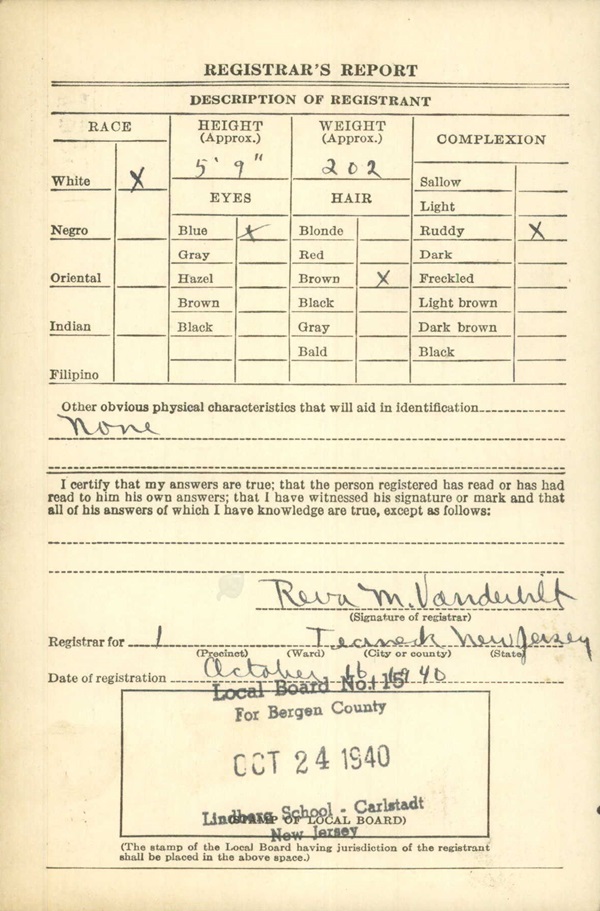 REGISTRAR'S REPORT
DESCRIPTION OF REGISTRANT
RACE
HEIGHT
(Approx.)
WEIGHT
(Approx.)
COMPLEXION
5' 9"
202
White X
EYES
HAIR
Sallow
Light
Negro
Blue X
Blonde
Ruddy X
Gray
Red
Dark
Oriental
Hazel
Brown X
Freckled
Brown
Black
Light brown
Indian
Black
Gray
Dark brown
Bald
Black
Filipino
Other obvious physical characteristics that will aid in identification
None
I certify that my answers are true; that the person registered has read or has had
read to him his own answers; that I have witnessed his signature or mark and that
all of his answers of which I have knowledge are true, except as follows:
Reva M. Vanderbilt
(Signature of registrar)
Registrar for 1 Teaneck New Jersey
(Precinct) (Ward) (City or county) (State)
Date of registration October 16 1940
Local Board No. 15
For Bergen County
OCT 24 1940
Lindberg School - Carlstadt
(STAMP OF LOCAL BOARD)
New Jersey
(The stamp of the Local Board having jurisdiction of the registrant
shall be placed in the above space.)